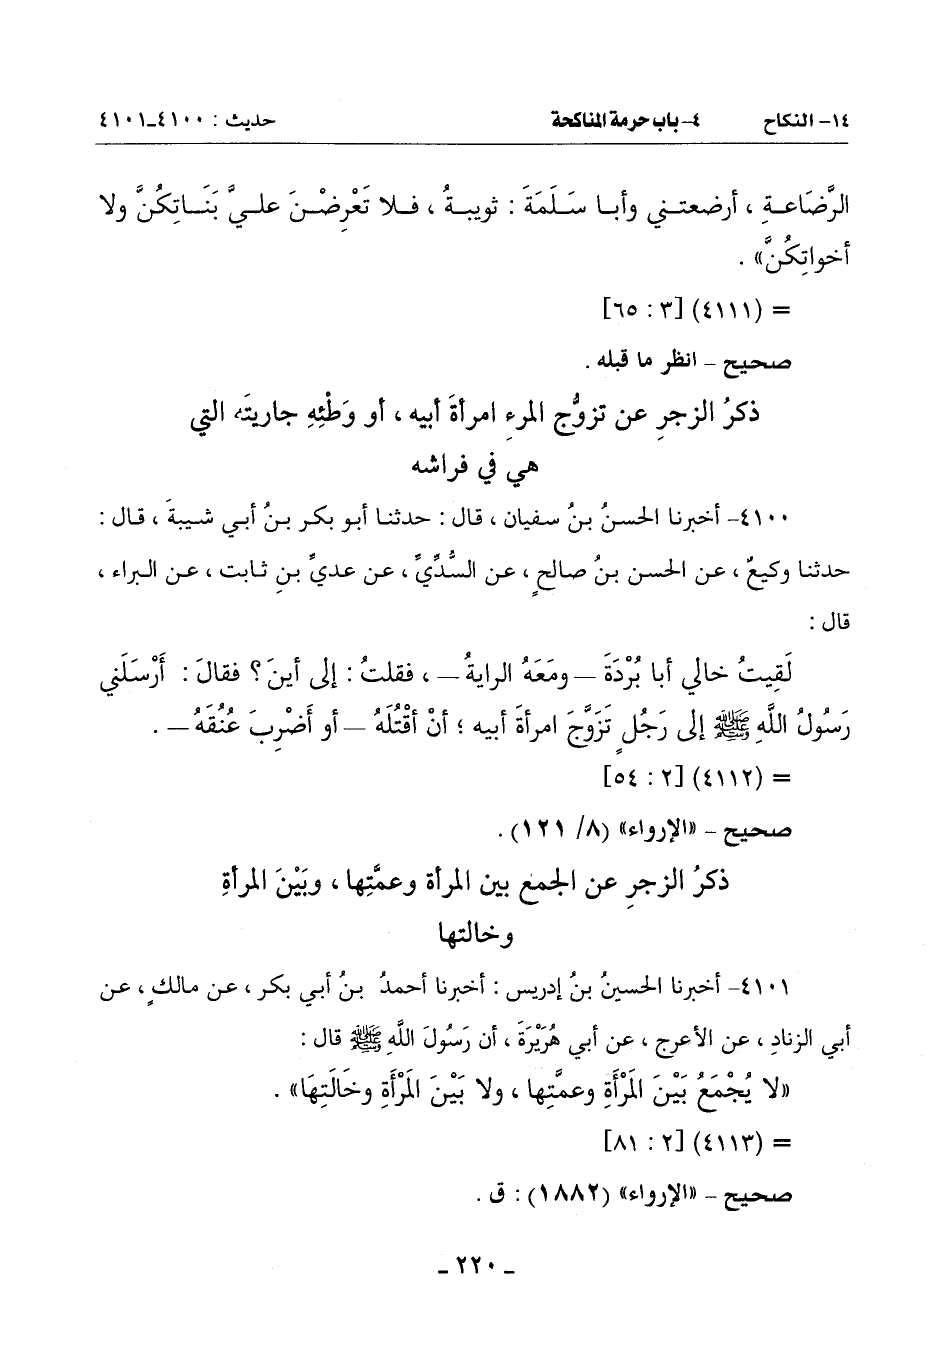 ١٤- النكاح ٤- باب حرمة المناكحة حديث : ٤١٠٠-٤١٠١
الرَّضَاعةِ ، أرضعتني وأبا سَلَمَةَ : ثويبةُ ، فلا تَعْرِضْنَ عليَّ بَنَاتِكُنَّ ولا
أخواتِكُنَّ» .
= (٤١١١) [٣ : ٦٥]
صحيح – انظر ما قبله .
ذكرُ الزجرِ عن تزوُّجِ المرءِ امرأةَ أبيه ، أو وَطْئِهِ جاريتَه التي
هي في فراشه
٤١٠٠– أخبرنا الحسنُ بنُ سفيان ، قال : حدثنا أبو بكر بنُ أبي شيبةَ ، قال :
حدثنا وكيعٌ ، عن الحسن بنُ صالحٍ ، عن السُّدِّيِّ ، عن عديِّ بنِ ثابت ، عن البراء ،
قال :
لَقِيتُ خالي أبا بُرْدَةَ – ومَعَهُ الرايةُ – ، فقلتُ : إلى أينَ ؟ فقالَ : أَرْسَلَني
رَسُولُ اللَّهِ ﷺ إلى رَجُلٍ تَزَوَّجَ امرأةَ أبيه ؛ أنْ أقْتُلَهُ – أو أضْرِبَ عُنُقَهُ – .
= (٤١١٢) [٢ : ٥٤]
صحيح – «الإرواء» (٨/ ١٢١) .
ذكرُ الزجرِ عن الجمع بين المرأة وعمَّتِها ، وبَيْنَ المرأةِ
وخالتها
٤١٠١– أخبرنا الحسينُ بنُ إدريس : أخبرنا أحمدُ بنُ أبي بكر ، عن مالكٍ ، عن
أبي الزنادِ ، عن الأعرج ، عن أبي هُرَيْرَةَ ، أن رَسُولَ اللَّهِ ﷺ قال :
«لا يُجْمَعُ بَيْنَ المَرْأَةِ وعمتِها ، ولا بَيْنَ المَرْأَةِ وخَالَتِهَا» .
= (٤١١٣) [٢ : ٨١]
صحيح – «الإرواء» (١٨٨٢) : ق .
ـ ٢٢٠ ـ